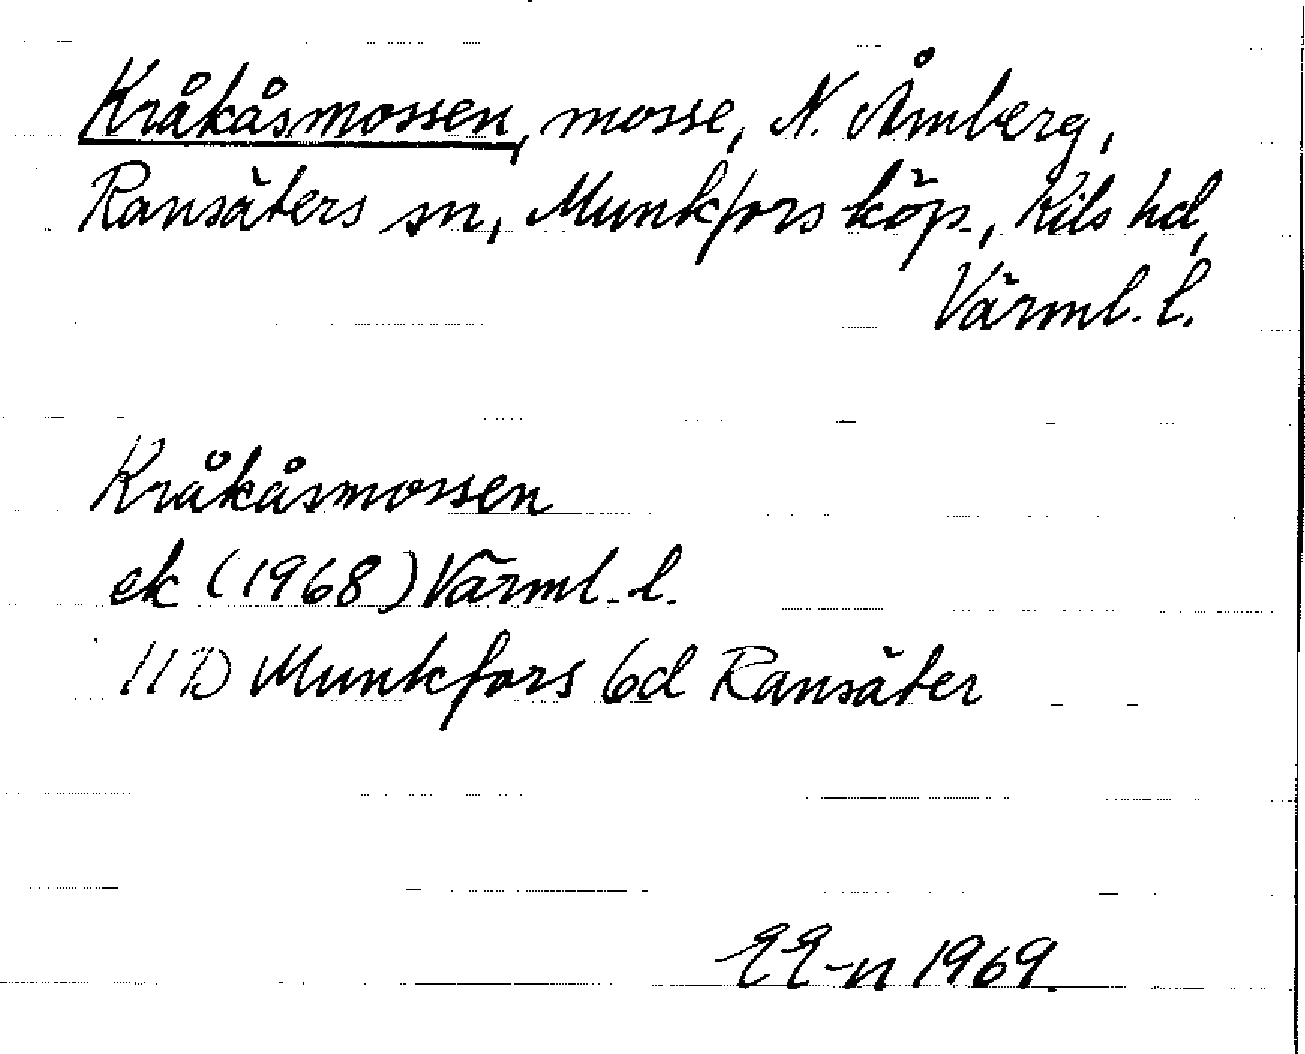 Kråkåsmossen, mosse, N. Åmberg,
Ransäters sn, Munkfors köp., Kils hd,
Värml. l.
Kråkåsmossen
ek (1968) Värml. l.
11D Munkfors 6d Ransäter
EE-n 1969.